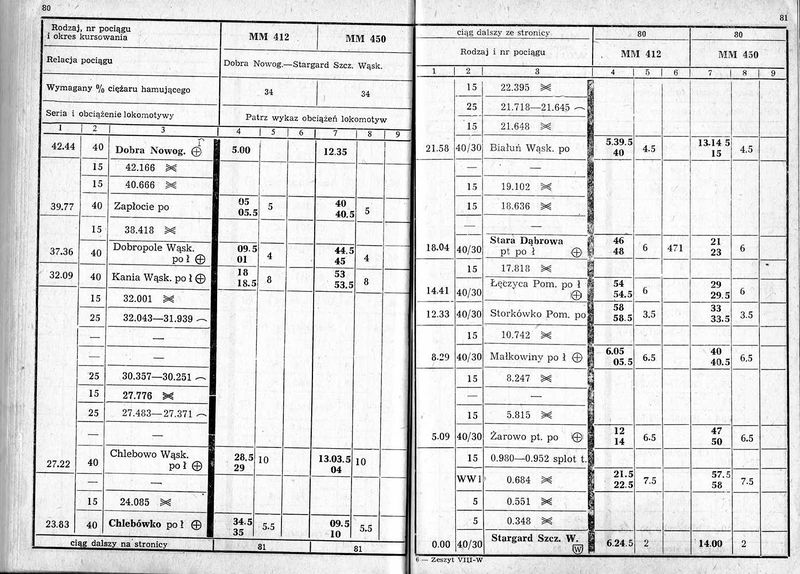 80
Rodzaj, nr pociągu
i okres kursowania
MM 412 MM 450
Relacja pociągu
Dobra Nowog.—Stargard Szcz. Wąsk.
Wymagany % ciężaru hamującego
34 34
Seria i obciążenie lokomotywy
Patrz wykaz obciążeń lokomotyw
1 2 3 4 5 6 7 8 9
42.44 40 Dobra Nowog. 5.00 12.35
15 42.166
15 40.666
39.77 40 Zapłocie po 05 05.5 5 40 40.5 5
15 38.418
37.36 40 Dobropole Wąsk. po ł 09.5 01 4 44.5 45 4
32.09 40 Kania Wąsk. po ł 18 18.5 8 53 53.5 8
15 32.001
25 32.043—31.939
— —
— —
25 30.357—30.251
15 27.776
25 27.483—27.371
— —
27.22 40 Chlebowo Wąsk. po ł 28.5 29 10 13.03.5 04 10
— —
15 24.085
23.83 40 Chlebówko po ł 34.5 35 5.5 09.5 10 5.5
ciąg dalszy na stronicy 81 81
81
ciąg dalszy ze stronicy 80 80
Rodzaj i nr pociągu MM 412 MM 450
1 2 3 4 5 6 7 8 9
15 22.395
25 21.718—21.645
15 21.648
21.58 40/30 Białuń Wąsk. po 5.39.5 40 4.5 13.14 5 15 4.5
— —
15 19.102
15 18.636
— —
18.04 40/30 Stara Dąbrowa pt po ł 46 48 6 471 21 23 6
15 17.818
14.41 40/30 Łęczyca Pom. po ł 54 54.5 6 29 29.5 6
12.33 40/30 Storkówko Pom. po 58 58.5 3.5 33 33.5 3.5
15 10.742
8.29 40/30 Małkowiny po ł 6.05 05.5 6.5 40 40.5 6.5
15 8.247
— —
15 5.815
5.09 40/30 Żarowo pt. po 12 14 6.5 47 50 6.5
15 0.980—0.952 splot t.
WW1 0.684 21.5 22.5 7.5 57.5 58 7.5
5 0.551
5 0.348
0.00 40/30 Stargard Szcz. W. W 6.24.5 2 14.00 2
6 — Zeszyt VIII-W